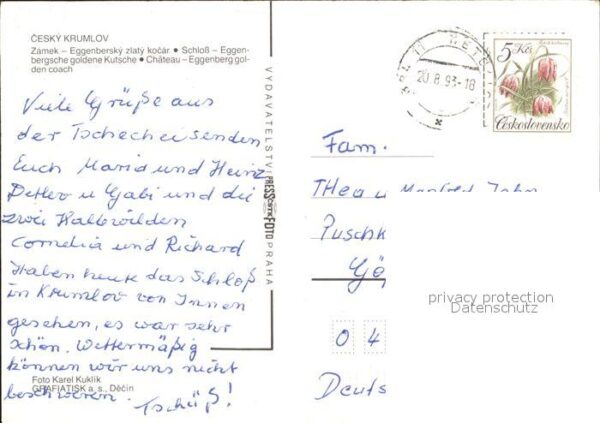 ČESKÝ KRUMLOV
Zámek – Eggenberský zlatý kočár • Schloß – Eggen-
bergsche goldene Kutsche • Château – Eggenberg gol-
den coach
Viele Grüße aus
der Tschechei senden
Euch Maria und Heinz
Detlev u Gabi und die
zwei Halbwilden
Cornelia und Richard
Haben heute das Schloß
in Krumlov von Innen
gesehen, es war sehr
schön. Wettermäßig
können wir uns nicht
beschweren. Tschüß!
Foto Karel Kuklík
GRAFIATISK a. s., Děčín
VYDAVATELSTVÍ PRESSFOTO PRAHA
20.8.93-18
5 Kčs
Československo
Fam.
Thea u Manfred John
Puschk
Gö
privacy protection
Datenschutz
0 4
Deuts